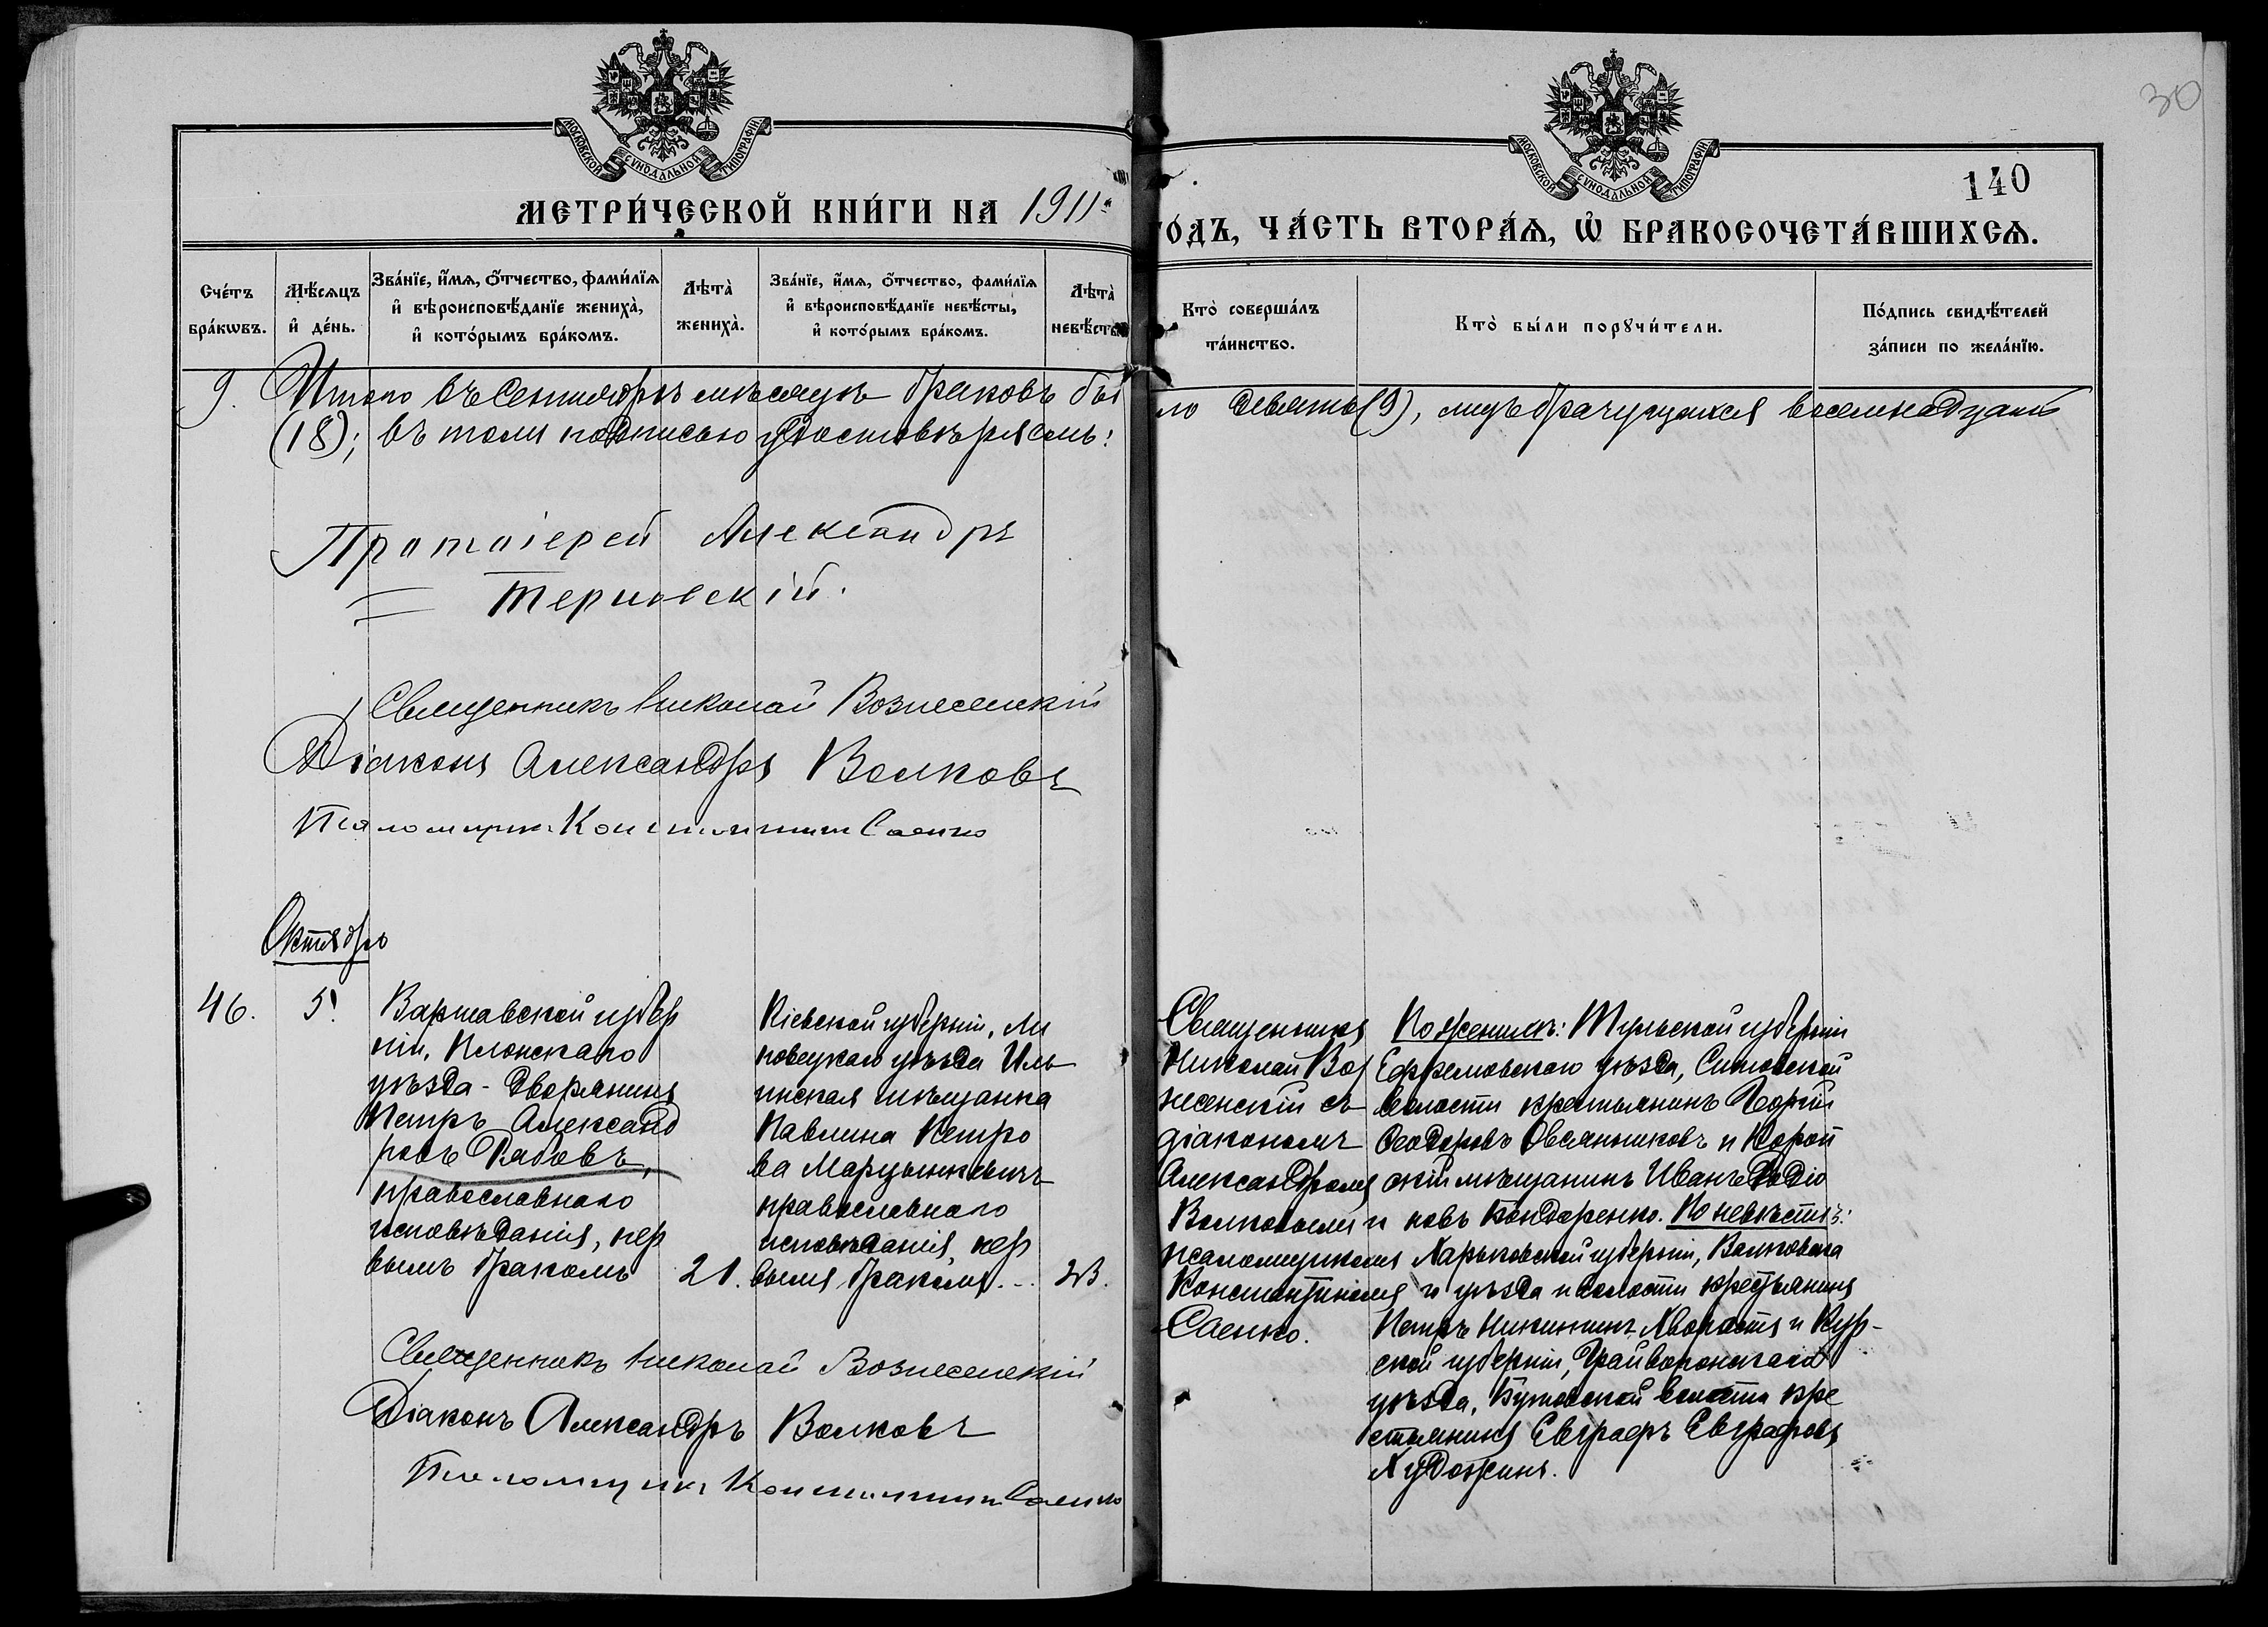 МОСКОВСКОЙ СѴНОДАЛЬНОЙ ТИПОГРАФІИ
МОСКОВСКОЙ СѴНОДАЛЬНОЙ ТИПОГРАФІИ
30
140
МЕТРИ́ЧЕСКОЙ КНИ́ГИ НА 1911 ГО́ДЪ, ЧА́СТЬ ВТОРА́Ѧ, Ѡ҆ БРАКОСОЧЕТА́ВШИХСѦ.
Сче́тъ
бра́кѡвъ.
Мѣ́сѧцъ
и҆ де́нь.
Зва́нїе, и҆́мѧ, ѻ҆́тчество, фами́лїѧ
и҆ вѣроисповѣ́данїе жениха̀,
и҆ кото́рымъ бра́комъ.
Лѣта̀
жениха̀.
Зва́нїе, и҆́мѧ, ѻ҆́тчество, фами́лїѧ
и҆ вѣроисповѣ́данїе невѣ́сты,
и҆ кото́рымъ бра́комъ.
Лѣта̀
невѣ́сты
Кто̀ соверша́лъ
та́инство.
Кто̀ бы́ли порꙋчи́тели.
По́дпись свидѣ́телей
за́писи по жела́нїю.
9. Итого въ Сентябрѣ мѣсяцѣ браковъ было девять (9), лицъ брачущихся восемнадцать
(18); въ томъ подписью удостовѣряемъ:
Протоіерей Александръ
Терновскій.
Священникъ Николай Вознесенскій
Діаконъ Александръ Волковъ
Псаломщикъ Константинъ Саенко
Октябрь
46. 5.
Варшавской губер
ніи, Плонскаго
уѣзда - дворянинъ
Петръ Александ
ровъ Рябовъ,
православнаго
исповѣданія, пер
вымъ бракомъ
21.
Кіевской губерніи, Ли
повецкаго уѣзда Иль
инская мѣщанка
Павлина Петро
ва Марцынкевичъ
православнаго
исповѣданія, пер
вымъ бракомъ.
23.
Священникъ
Николай Воз
несенскій съ
діакономъ
Александромъ
Волковымъ и
псаломщикомъ
Константиномъ
Саенко.
По женихѣ: Тульской губерніи
Ефремовскаго уѣзда, Ситовской
волости крестьянинъ Георгій
Ѳеодоровъ Овсянниковъ и Корой
скій мѣщанинъ Иванъ Родіо
новъ Бондаренко. По невѣстѣ:
Харьковской губерніи, Валковска
го уѣзда и волости крестьянинъ
Петръ Никитинъ Хворостъ и Кур-
ской губерніи, Грайворонскаго
уѣзда, Бутовской волости кре
стьянинъ Евграфъ Евграфовъ
Художинъ.
Священникъ Николай Вознесенскій
Діаконъ Александръ Волковъ
Псаломщикъ Константинъ Саенко